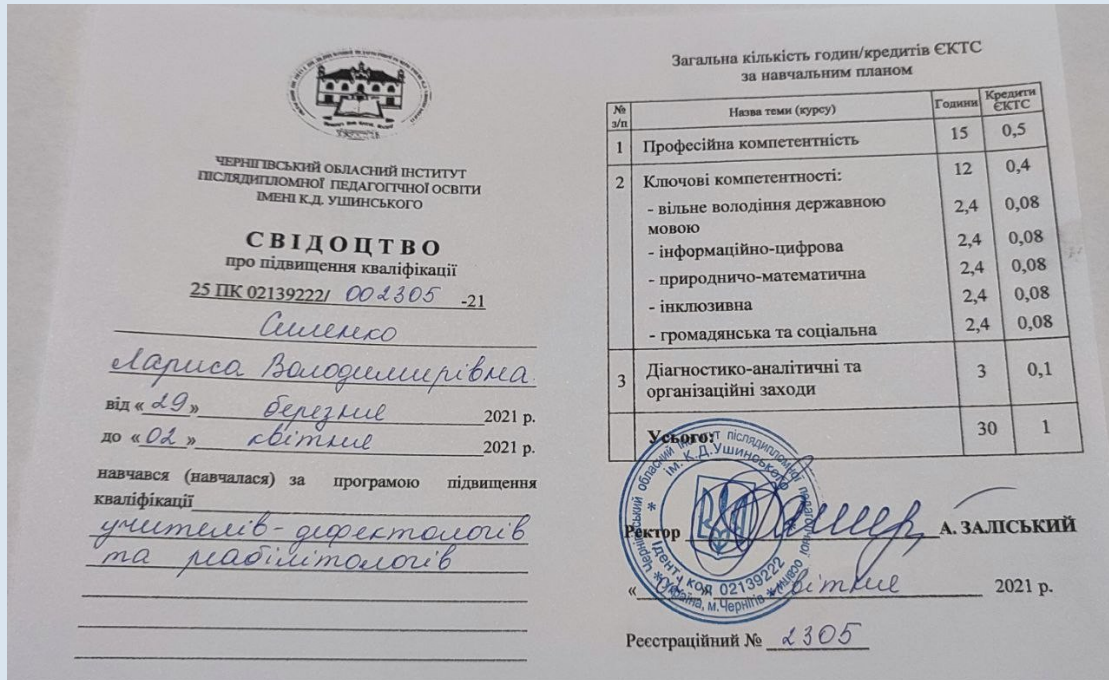 ЧЕРНІГІВСЬКИЙ ОБЛАСНИЙ ІНСТИТУТ
ПІСЛЯДИПЛОМНОЇ ПЕДАГОГІЧНОЇ ОСВІТИ
ІМЕНІ К.Д. УШИНСЬКОГО
СВІДОЦТВО
про підвищення кваліфікації
25 ПК 02139222/ 002305 -21
Силенко
Лариса Володимирівна.
від «29» березня 2021 р.
до «02» квітня 2021 р.
навчався (навчалася) за програмою підвищення
кваліфікації
учителів-дефектологів
та реабілітологів
Загальна кількість годин/кредитів ЄКТС
за навчальним планом
№ з/п Назва теми (курсу) Години Кредити ЄКТС
1 Професійна компетентність 15 0,5
2 Ключові компетентності: 12 0,4
- вільне володіння державною 2,4 0,08
мовою
- інформаційно-цифрова 2,4 0,08
- природничо-математична 2,4 0,08
- інклюзивна 2,4 0,08
- громадянська та соціальна 2,4 0,08
3 Діагностико-аналітичні та 3 0,1
організаційні заходи
Усього: 30 1
Чернігівський обласний інститут післядипломної педагогічної освіти
ім. К.Д.Ушинського
Ідент. код 02139222
Україна, м.Чернігів
Ректор А. ЗАЛІСЬКИЙ
« » квітня 2021 р.
Реєстраційний № 2305